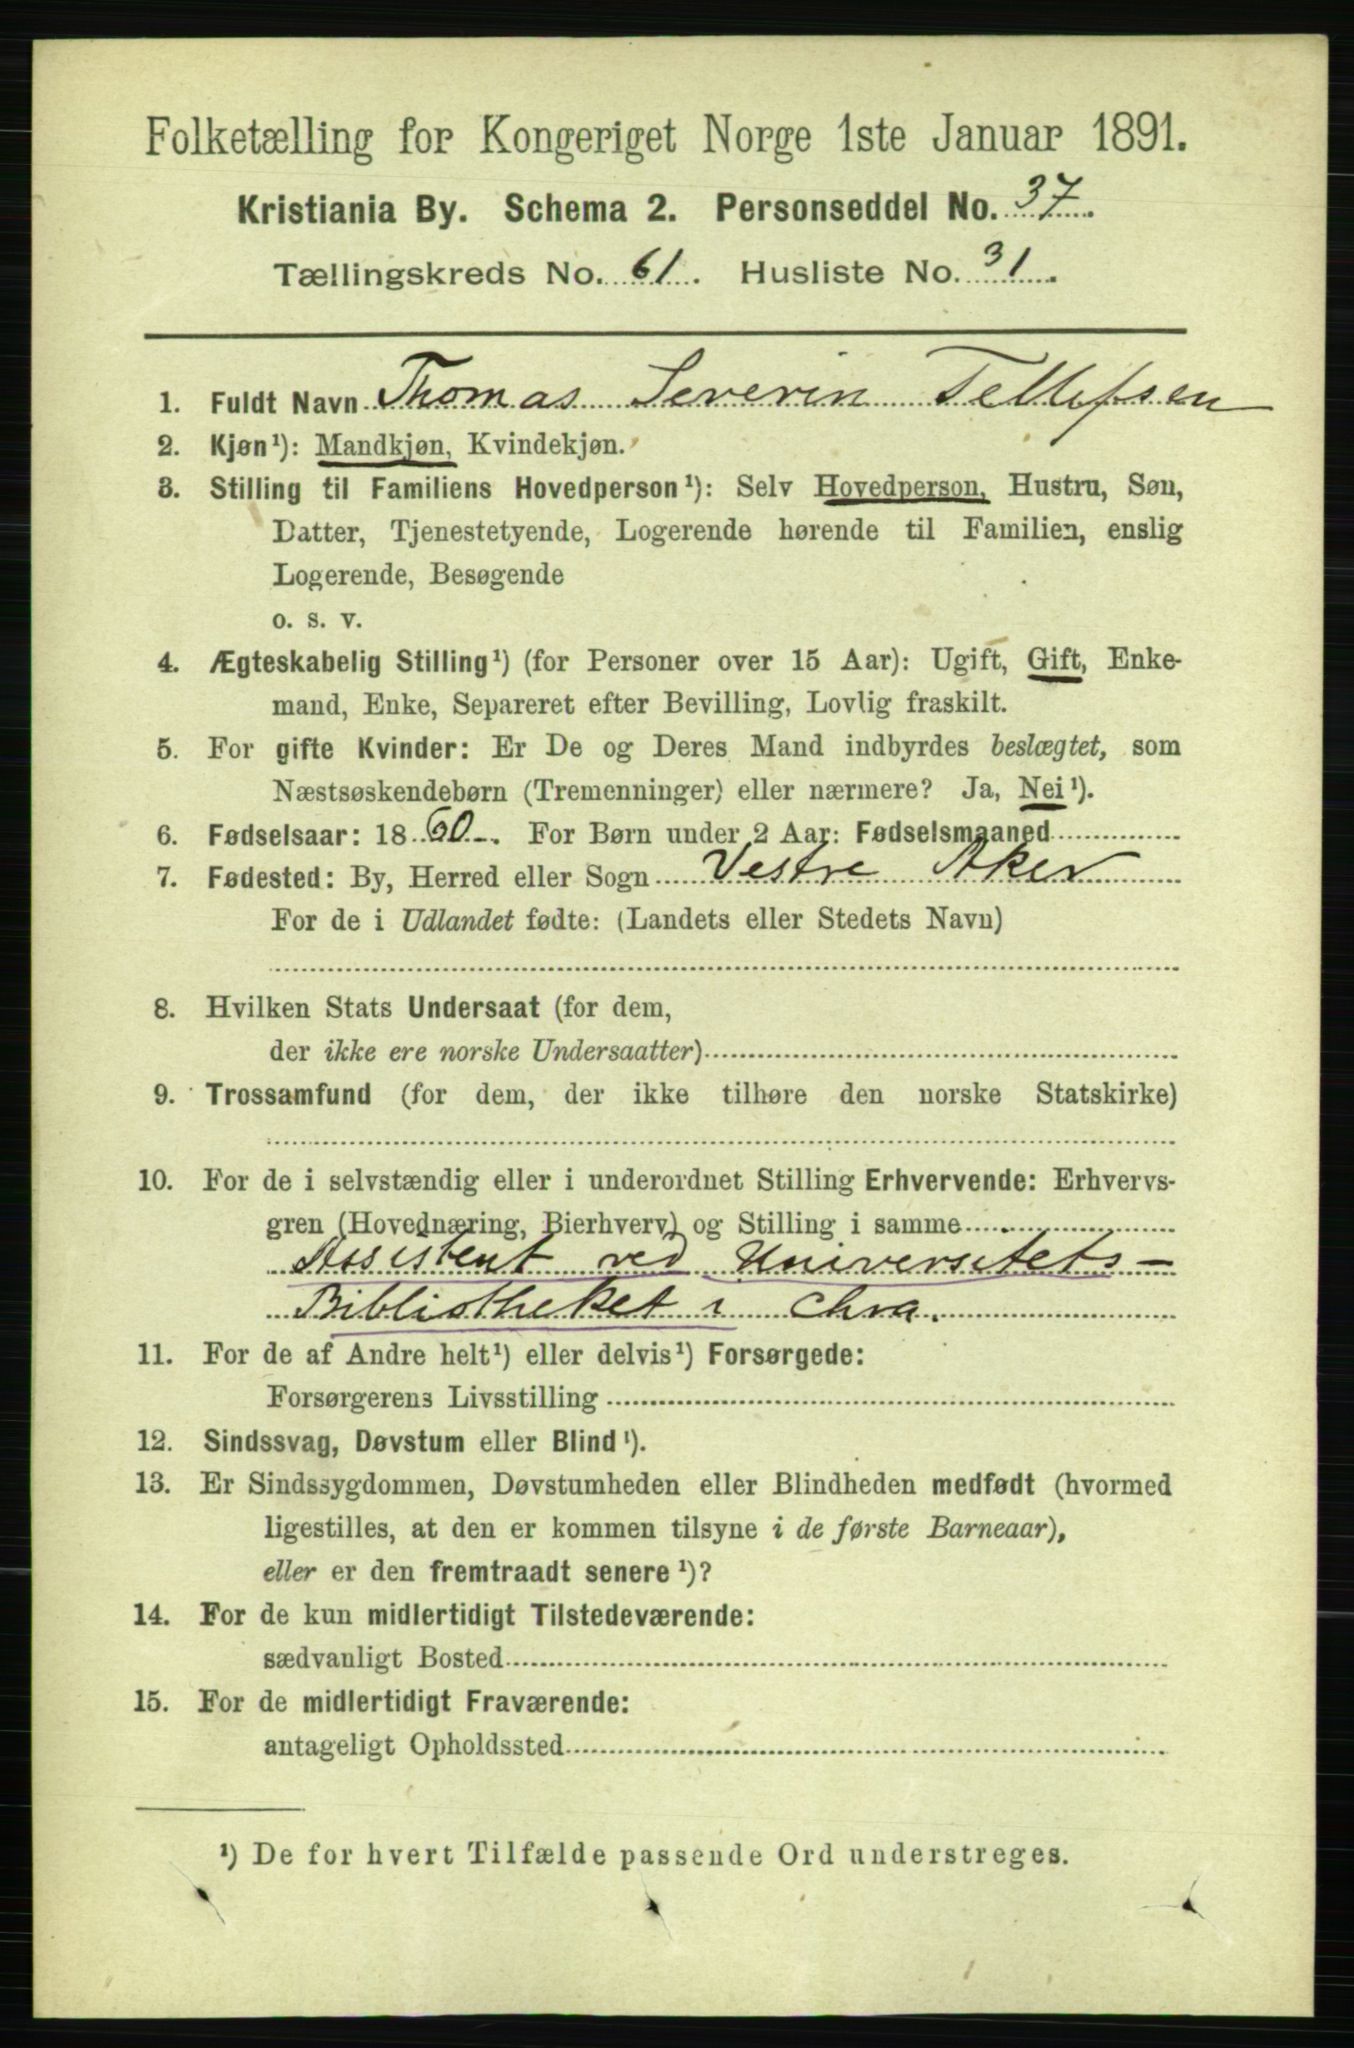 Folketælling for Kongeriget Norge 1ste Januar 1891.
Kristiania By. Schema 2. Personseddel No. 37.
Tællingskreds No. 61. Husliste No. 31.
1. Fuldt Navn Thomas Severin Tellefsen
2. Kjøn¹): Mandkjøn, Kvindekjøn.
3. Stilling til Familiens Hovedperson¹): Selv Hovedperson, Hustru, Søn,
Datter, Tjenestetyende, Logerende hørende til Familien, enslig
Logerende, Besøgende
o. s. v.
4. Ægteskabelig Stilling¹) (for Personer over 15 Aar): Ugift, Gift, Enke-
mand, Enke, Separeret efter Bevilling, Lovlig fraskilt.
5. For gifte Kvinder: Er De og Deres Mand indbyrdes beslægtet, som
Næstsøskendebørn (Tremenninger) eller nærmere? Ja, Nei¹).
6. Fødselsaar: 1860. For Børn under 2 Aar: Fødselsmaaned
7. Fødested: By, Herred eller Sogn Vestre Aker
For de i Udlandet fødte: (Landets eller Stedets Navn)
8. Hvilken Stats Undersaat (for dem,
der ikke ere norske Undersaatter)
9. Trossamfund (for dem, der ikke tilhøre den norske Statskirke)
10. For de i selvstændig eller i underordnet Stilling Erhvervende: Erhvervs-
gren (Hovednæring, Bierhverv) og Stilling i samme
Assistent ved Universitets-
Bibliotheket i Chra.
11. For de af Andre helt¹) eller delvis¹) Forsørgede:
Forsørgerens Livsstilling
12. Sindssvag, Døvstum eller Blind¹).
13. Er Sindssygdommen, Døvstumheden eller Blindheden medfødt (hvormed
ligestilles, at den er kommen tilsyne i de første Barneaar),
eller er den fremtraadt senere¹)?
14. For de kun midlertidigt Tilstedeværende:
sædvanligt Bosted
15. For de midlertidigt Fraværende:
antageligt Opholdssted
¹) De for hvert Tilfælde passende Ord understreges.